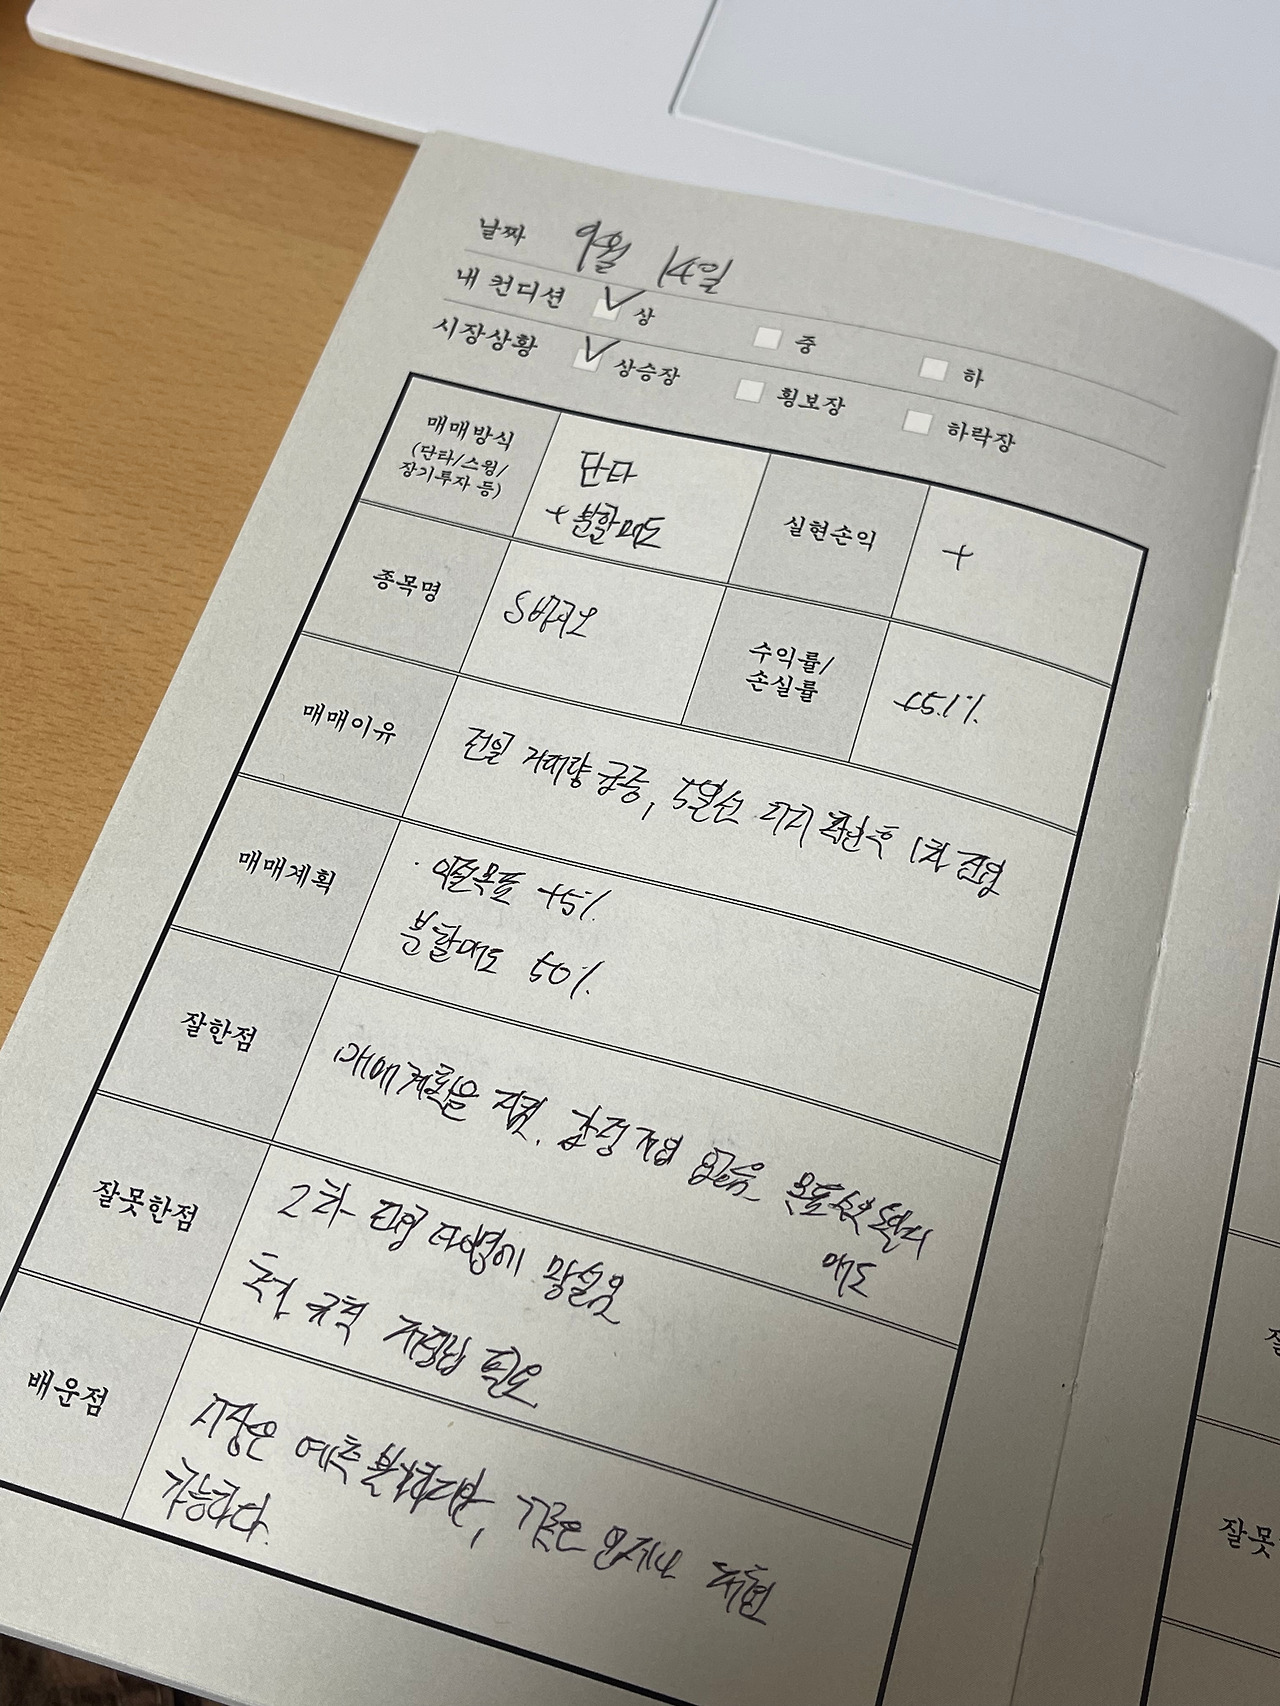 날짜 9월 14일
내 컨디션 상 중 하
시장상황 상승장 횡보장 하락장
매매방식
(단타/스윙/
장기투자 등)
단타
+ 분할매도
실현손익
+
종목명
수익률/
손실률
+5.1%
매매이유
전일 거래량 급증, 5일선 지지 확인 후 1차 진입
매매계획
· 익절목표 +5%
분할매도 50%
잘한점
매매계획을 지켰. 감정 개입 없음 목표수익 도달시
매도
잘못한점
2차 진입 타이밍에 망설임
추가 규칙 재정립 필요
배운점
시장은 예측 불가하지만, 기준은 언제나 재현
가능하다.
잘못